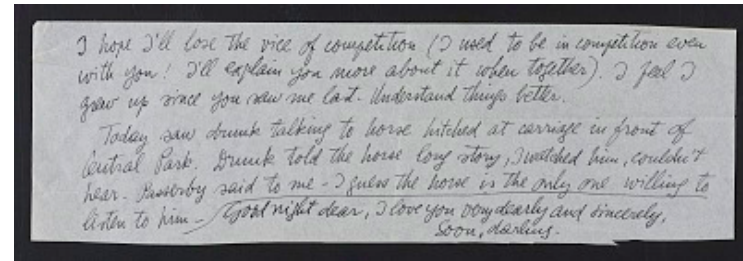 I hope I'll lose the vice of competition (I used to be in competition even
with you! I'll explain you more about it when together). I feel I
grew up since you saw me last. Understand things better.
Today saw drunk talking to horse hitched at carriage in front of
Central Park. Drunk told the horse long story, I watched him, couldn't
hear. Passerby said to me - I guess the horse is the only one willing to
listen to him - Good night dear, I love you very dearly and sincerely,
Soon, darling.